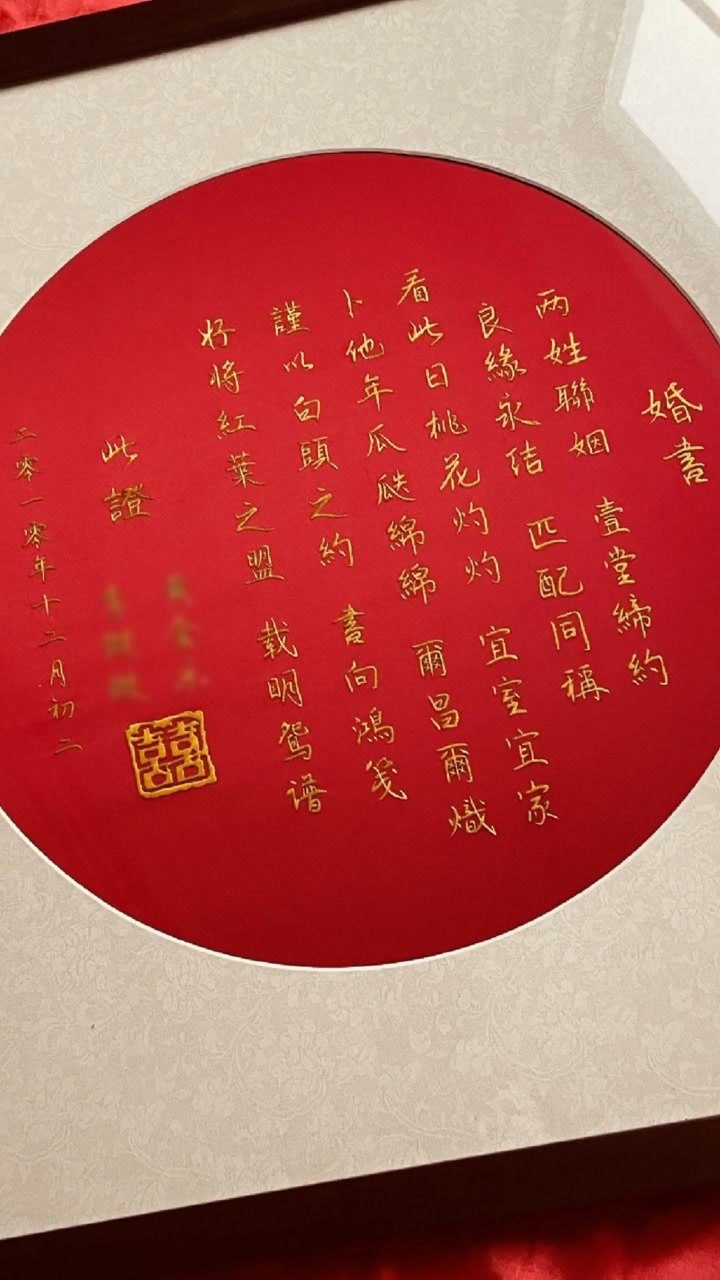 婚書
两姓聯姻 壹堂締約
良緣永结 匹配同稱
看此日桃花灼灼 宜室宜家
卜他年瓜瓞綿綿 爾昌爾熾
謹以白頭之約 書向鴻笺
好将紅葉之盟 载明鸳谱
此證
二零一零年十二月初二
囍